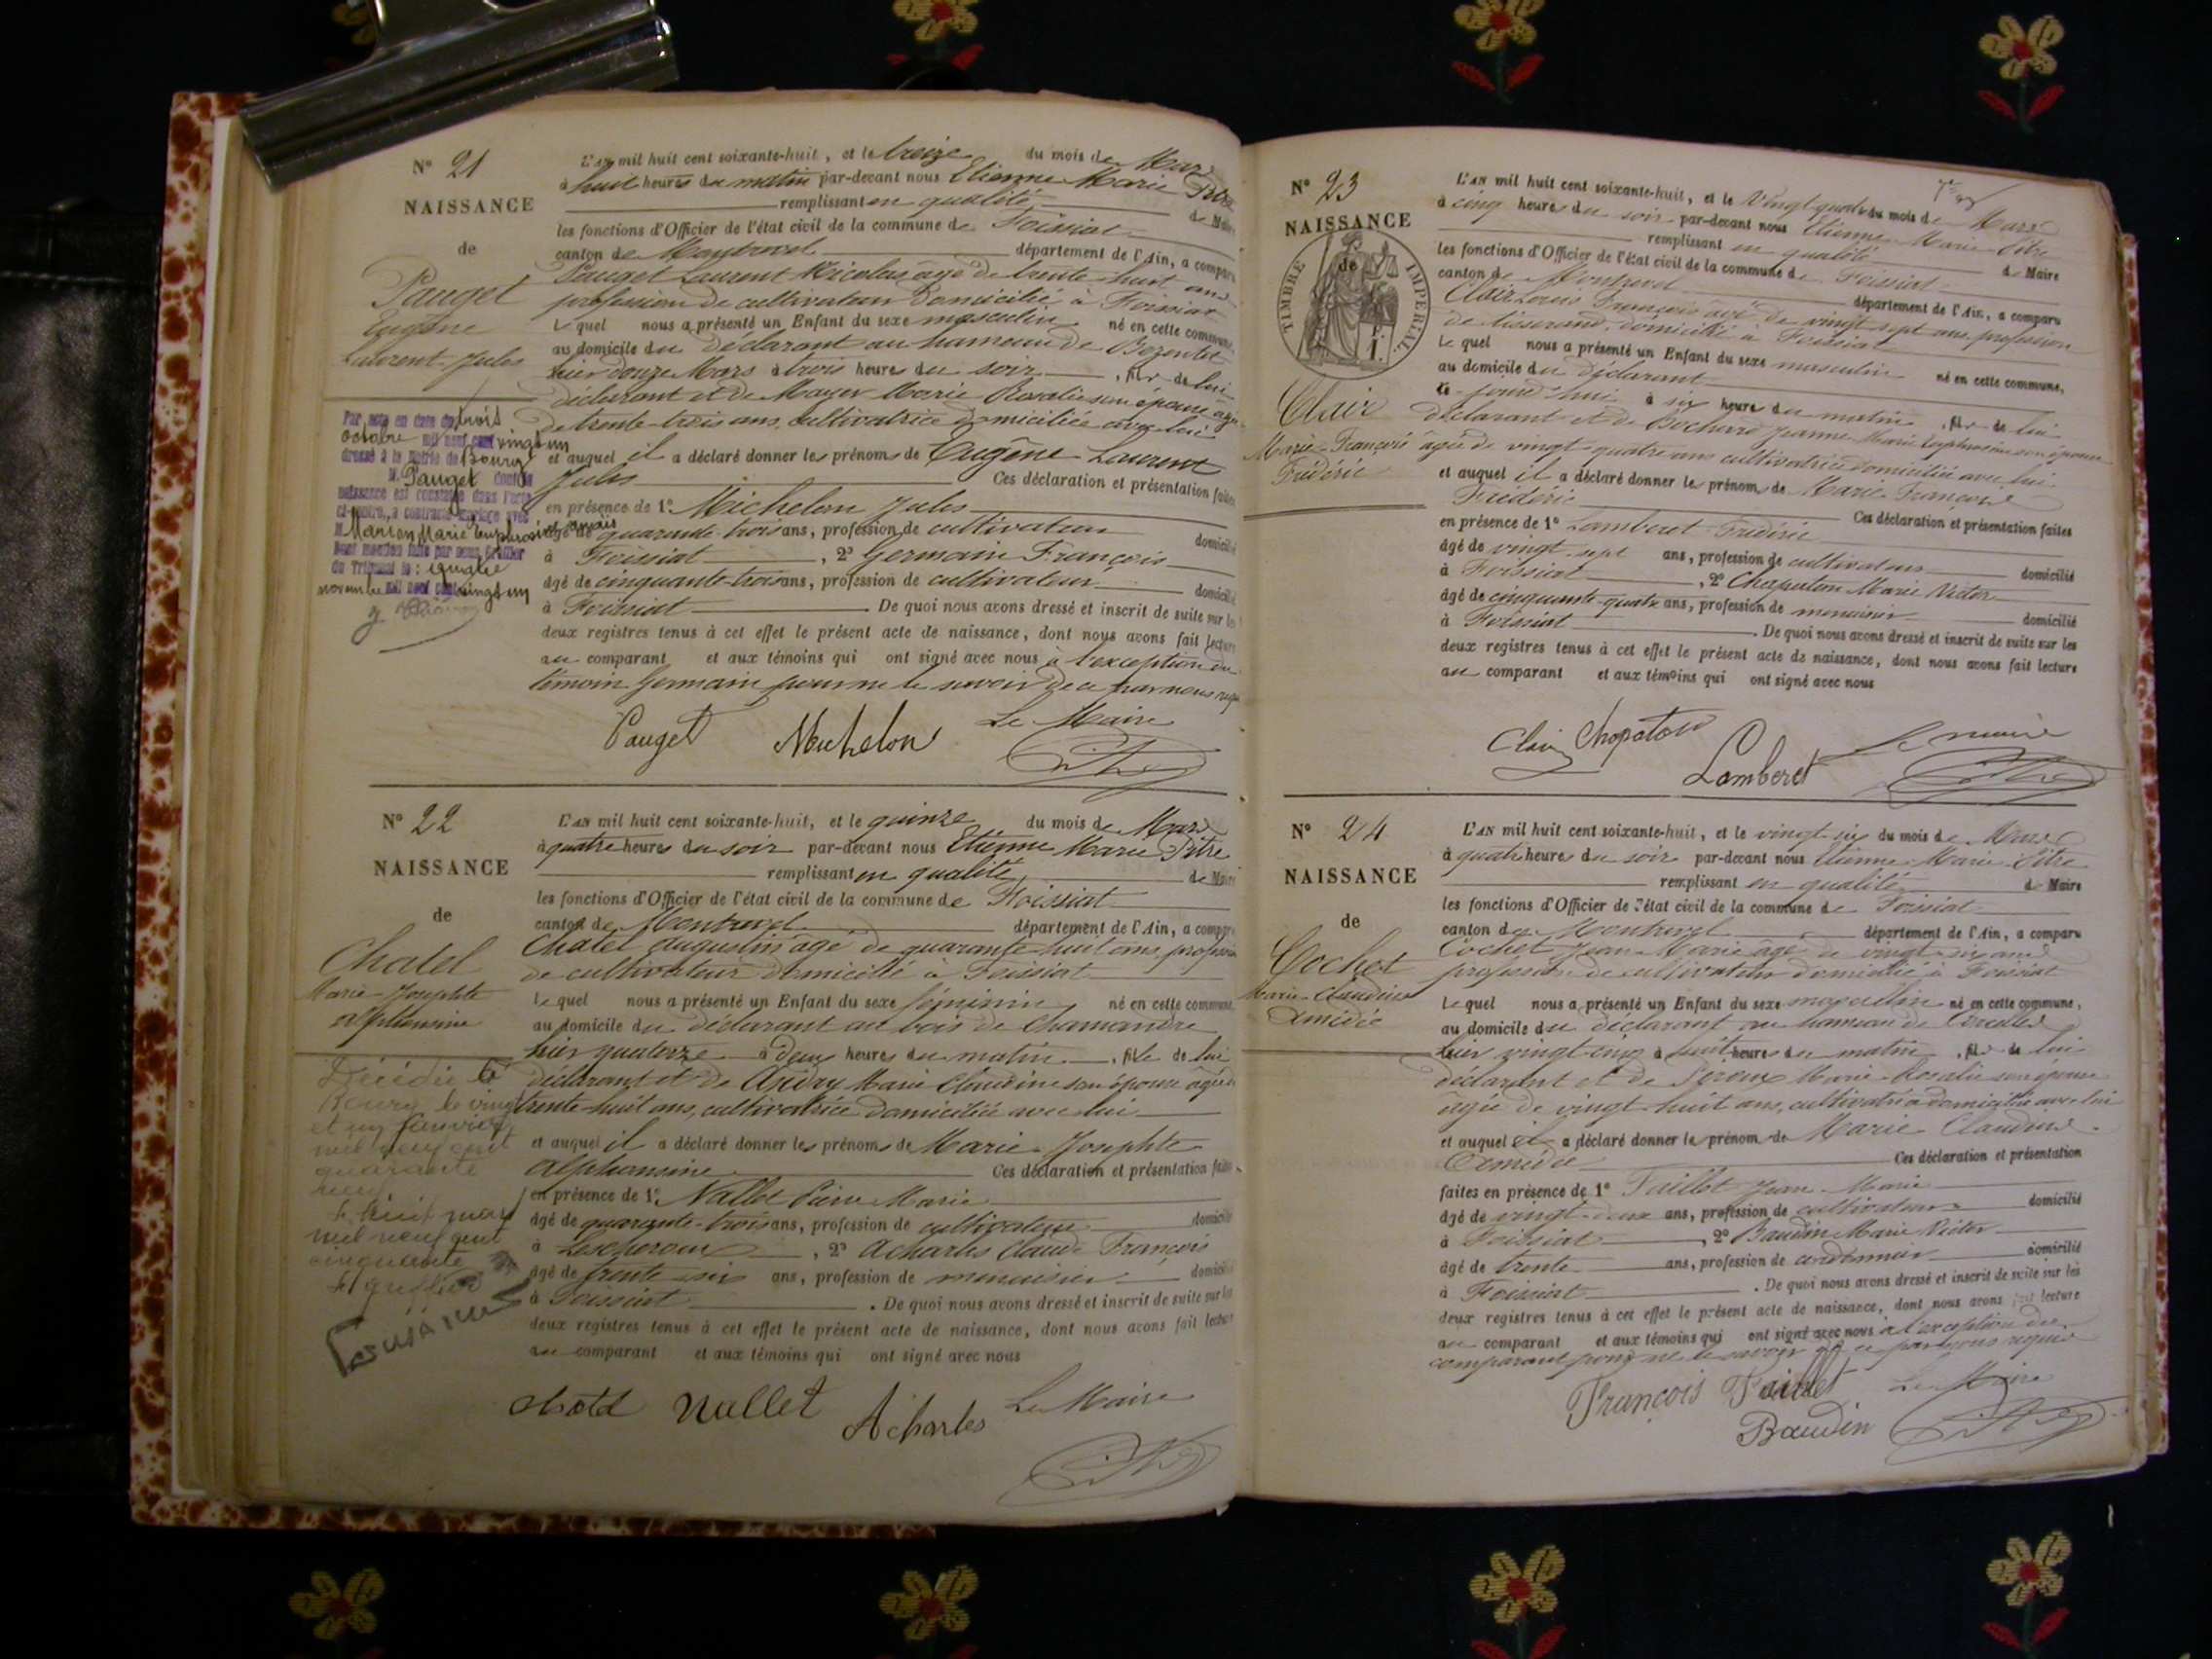 Nº 21
NAISSANCE
de
Pauget
Eugène
Laurent Jules
Par acte en date du trois
octobre mil neuf cent vingt un
dressé à la Mairie de Bourg
M. Pauget dont la
naissance est constatée dans l'acte
ci-contre, a contracté mariage avec
M. Manion Marie Euphrosine
Dont mention faite par nous, Greffier
du Tribunal le : quatre
novembre mil neuf cent vingt un
L'AN mil huit cent soixante-huit, et le treize du mois de Mars
à huit heures du matin par-devant nous Etienne Marie Pitre
remplissant en qualité de Maire
les fonctions d'Officier de l'état civil de la commune de Foissiat
canton de Montrevel département de l'Ain, a comparu
Pauget Laurent Nicolas âgé de trente huit ans
profession de cultivateur domicilié à Foissiat
Lequel nous a présenté un Enfant du sexe masculin né en cette commune,
au domicile du déclarant au hameau de
hier douze Mars à trois heures du soir, fils de lui
déclarant et de Mayer Marie Rosalie son épouse âgée
de trente trois ans, cultivatrice domiciliée avec lui
et auquel il a déclaré donner les prénoms de Eugène Laurent
Jules Ces déclaration et présentation faites
en présence de 1º Michelon Jules
âgé de quarante-trois ans, profession de cultivateur domicilié
à Foissiat, 2º Germain François
âgé de cinquante-trois ans, profession de cultivateur domicilié
à Foissiat De quoi nous avons dressé et inscrit de suite sur les
deux registres tenus à cet effet le présent acte de naissance, dont nous avons fait lecture
au comparant et aux témoins qui ont signé avec nous à l'exception du
témoin Germain pour ne le savoir de ce par nous requis
Pauget Michelon Le Maire
Pitre
Nº 22
NAISSANCE
de
Chatel
Marie-Josephte
Alphonsine
Décédée à
Bourg le vingt
et un janvier
mil neuf cent
quarante
neuf
Le huit mars
mil neuf cent
cinquante
Le greffier
L'AN mil huit cent soixante-huit, et le quinze du mois de Mars
à quatre heures du soir par-devant nous Etienne Marie Pitre
remplissant en qualité de Maire
les fonctions d'Officier de l'état civil de la commune de Foissiat
canton de Montrevel département de l'Ain, a comparu
Chatel Augustin âgé de quarante huit ans, profession
de cultivateur domicilié à Foissiat
Lequel nous a présenté un Enfant du sexe féminin né en cette commune,
au domicile du déclarant au bois de Chamandre
hier quatorze à deux heures du matin, fille de lui
déclarant et de Marie Claudine son épouse âgée de
trente-huit ans, cultivatrice domiciliée avec lui
et auquel il a déclaré donner les prénoms de Marie Josephte
Alphonsine Ces déclaration et présentation faites
en présence de 1º Nallet Pierre Marie
âgé de quarante-trois ans, profession de cultivateur domicilié
à Lescheroux, 2º Acharles Claude François
âgé de trente six ans, profession de menuisier domicilié
à Foissiat. De quoi nous avons dressé et inscrit de suite sur les
deux registres tenus à cet effet le présent acte de naissance, dont nous avons fait lecture
au comparant et aux témoins qui ont signé avec nous
chatel Nallet Acharles Le Maire
Pitre
Nº 23
NAISSANCE
de
TIMBRE IMPERIAL
Clair
Marie-François
Frédéric
L'AN mil huit cent soixante-huit, et le vingt-quatre du mois de Mars
à cinq heures du soir par-devant nous Etienne Marie Pitre
remplissant en qualité de Maire
les fonctions d'Officier de l'état civil de la commune de Foissiat
canton de Montrevel département de l'Ain, a comparu
Clair Louis François âgé de vingt sept ans, profession
de tisserand, domicilié à Foissiat
Lequel nous a présenté un Enfant du sexe masculin né en cette commune,
au domicile du déclarant
ce-jourd'hui à six heures du matin, fils de lui
déclarant et de Bochard Jeanne Marie Euphrosine son épouse
âgée de vingt-quatre ans cultivatrice domiciliée avec lui
et auquel il a déclaré donner les prénoms de Marie François
Frédéric Ces déclaration et présentation faites
en présence de 1º Lamberet Frédéric
âgé de vingt-sept ans, profession de cultivateur domicilié
à Foissiat, 2º Chapotou Marie Victor
âgé de cinquante-quatre ans, profession de menuisier domicilié
à Foissiat. De quoi nous avons dressé et inscrit de suite sur les
deux registres tenus à cet effet le présent acte de naissance, dont nous avons fait lecture
au comparant et aux témoins qui ont signé avec nous
Clair Chapotou Lamberet Le maire
Pitre
Nº 24
NAISSANCE
de
Cochet
Marie-Claudius
Amédée
L'AN mil huit cent soixante-huit, et le vingt-six du mois de Mars
à quatre heures du soir par-devant nous Etienne Marie Pitre
remplissant en qualité de Maire
les fonctions d'Officier de l'état civil de la commune de Foissiat
canton de Montrevel département de l'Ain, a comparu
Cochet Jean Marie âgé de vingt-six ans
profession de cultivateur domicilié à Foissiat
Lequel nous a présenté un Enfant du sexe masculin né en cette commune,
au domicile du déclarant au hameau de
hier vingt-cinq à huit heures du matin, fils de lui
déclarant et de Marie-Rosalie son épouse
âgée de vingt-huit ans, cultivatrice domiciliée avec lui
et auquel il a déclaré donner les prénoms de Marie Claudius
Amédée Ces déclaration et présentation
faites en présence de 1º Faillet Jean-Marie
âgé de vingt-deux ans, profession de cultivateur domicilié
à Foissiat, 2º Baudin Marie Victor
âgé de trente ans, profession de cordonnier domicilié
à Foissiat. De quoi nous avons dressé et inscrit de suite sur les
deux registres tenus à cet effet le présent acte de naissance, dont nous avons fait lecture
au comparant et aux témoins qui ont signé avec nous à l'exception du
comparant pour ne le savoir de ce par nous requis
François Faillet Le Maire
Baudin Pitre